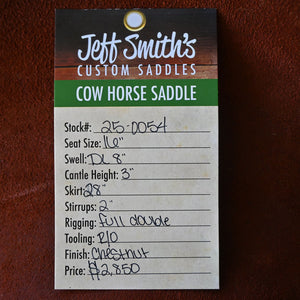 Jeff Smith's
CUSTOM SADDLES
COW HORSE SADDLE
Stock#: 25-0054
Seat Size: 16"
Swell: DL 8"
Cantle Height: 3"
Skirt: 28"
Stirrups: 2"
Rigging: full double
Tooling: R/O
Finish: Chestnut
Price: $2,850